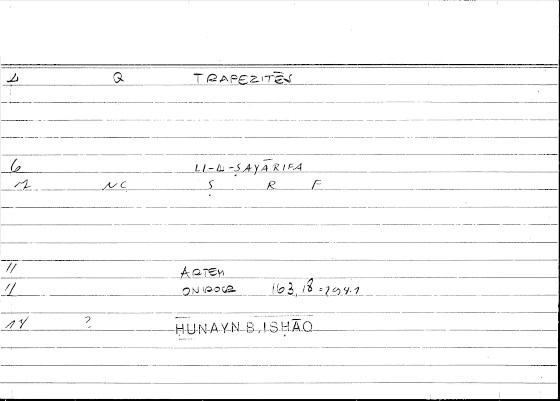 Q TRAPEZITĒS
6 LI-L-ṢAYĀRIFA
NC Ṣ R F
11 ARTEM
11 ONIROCR 163,18 =
14 ? ḤUNAYN B. ISḤĀQ